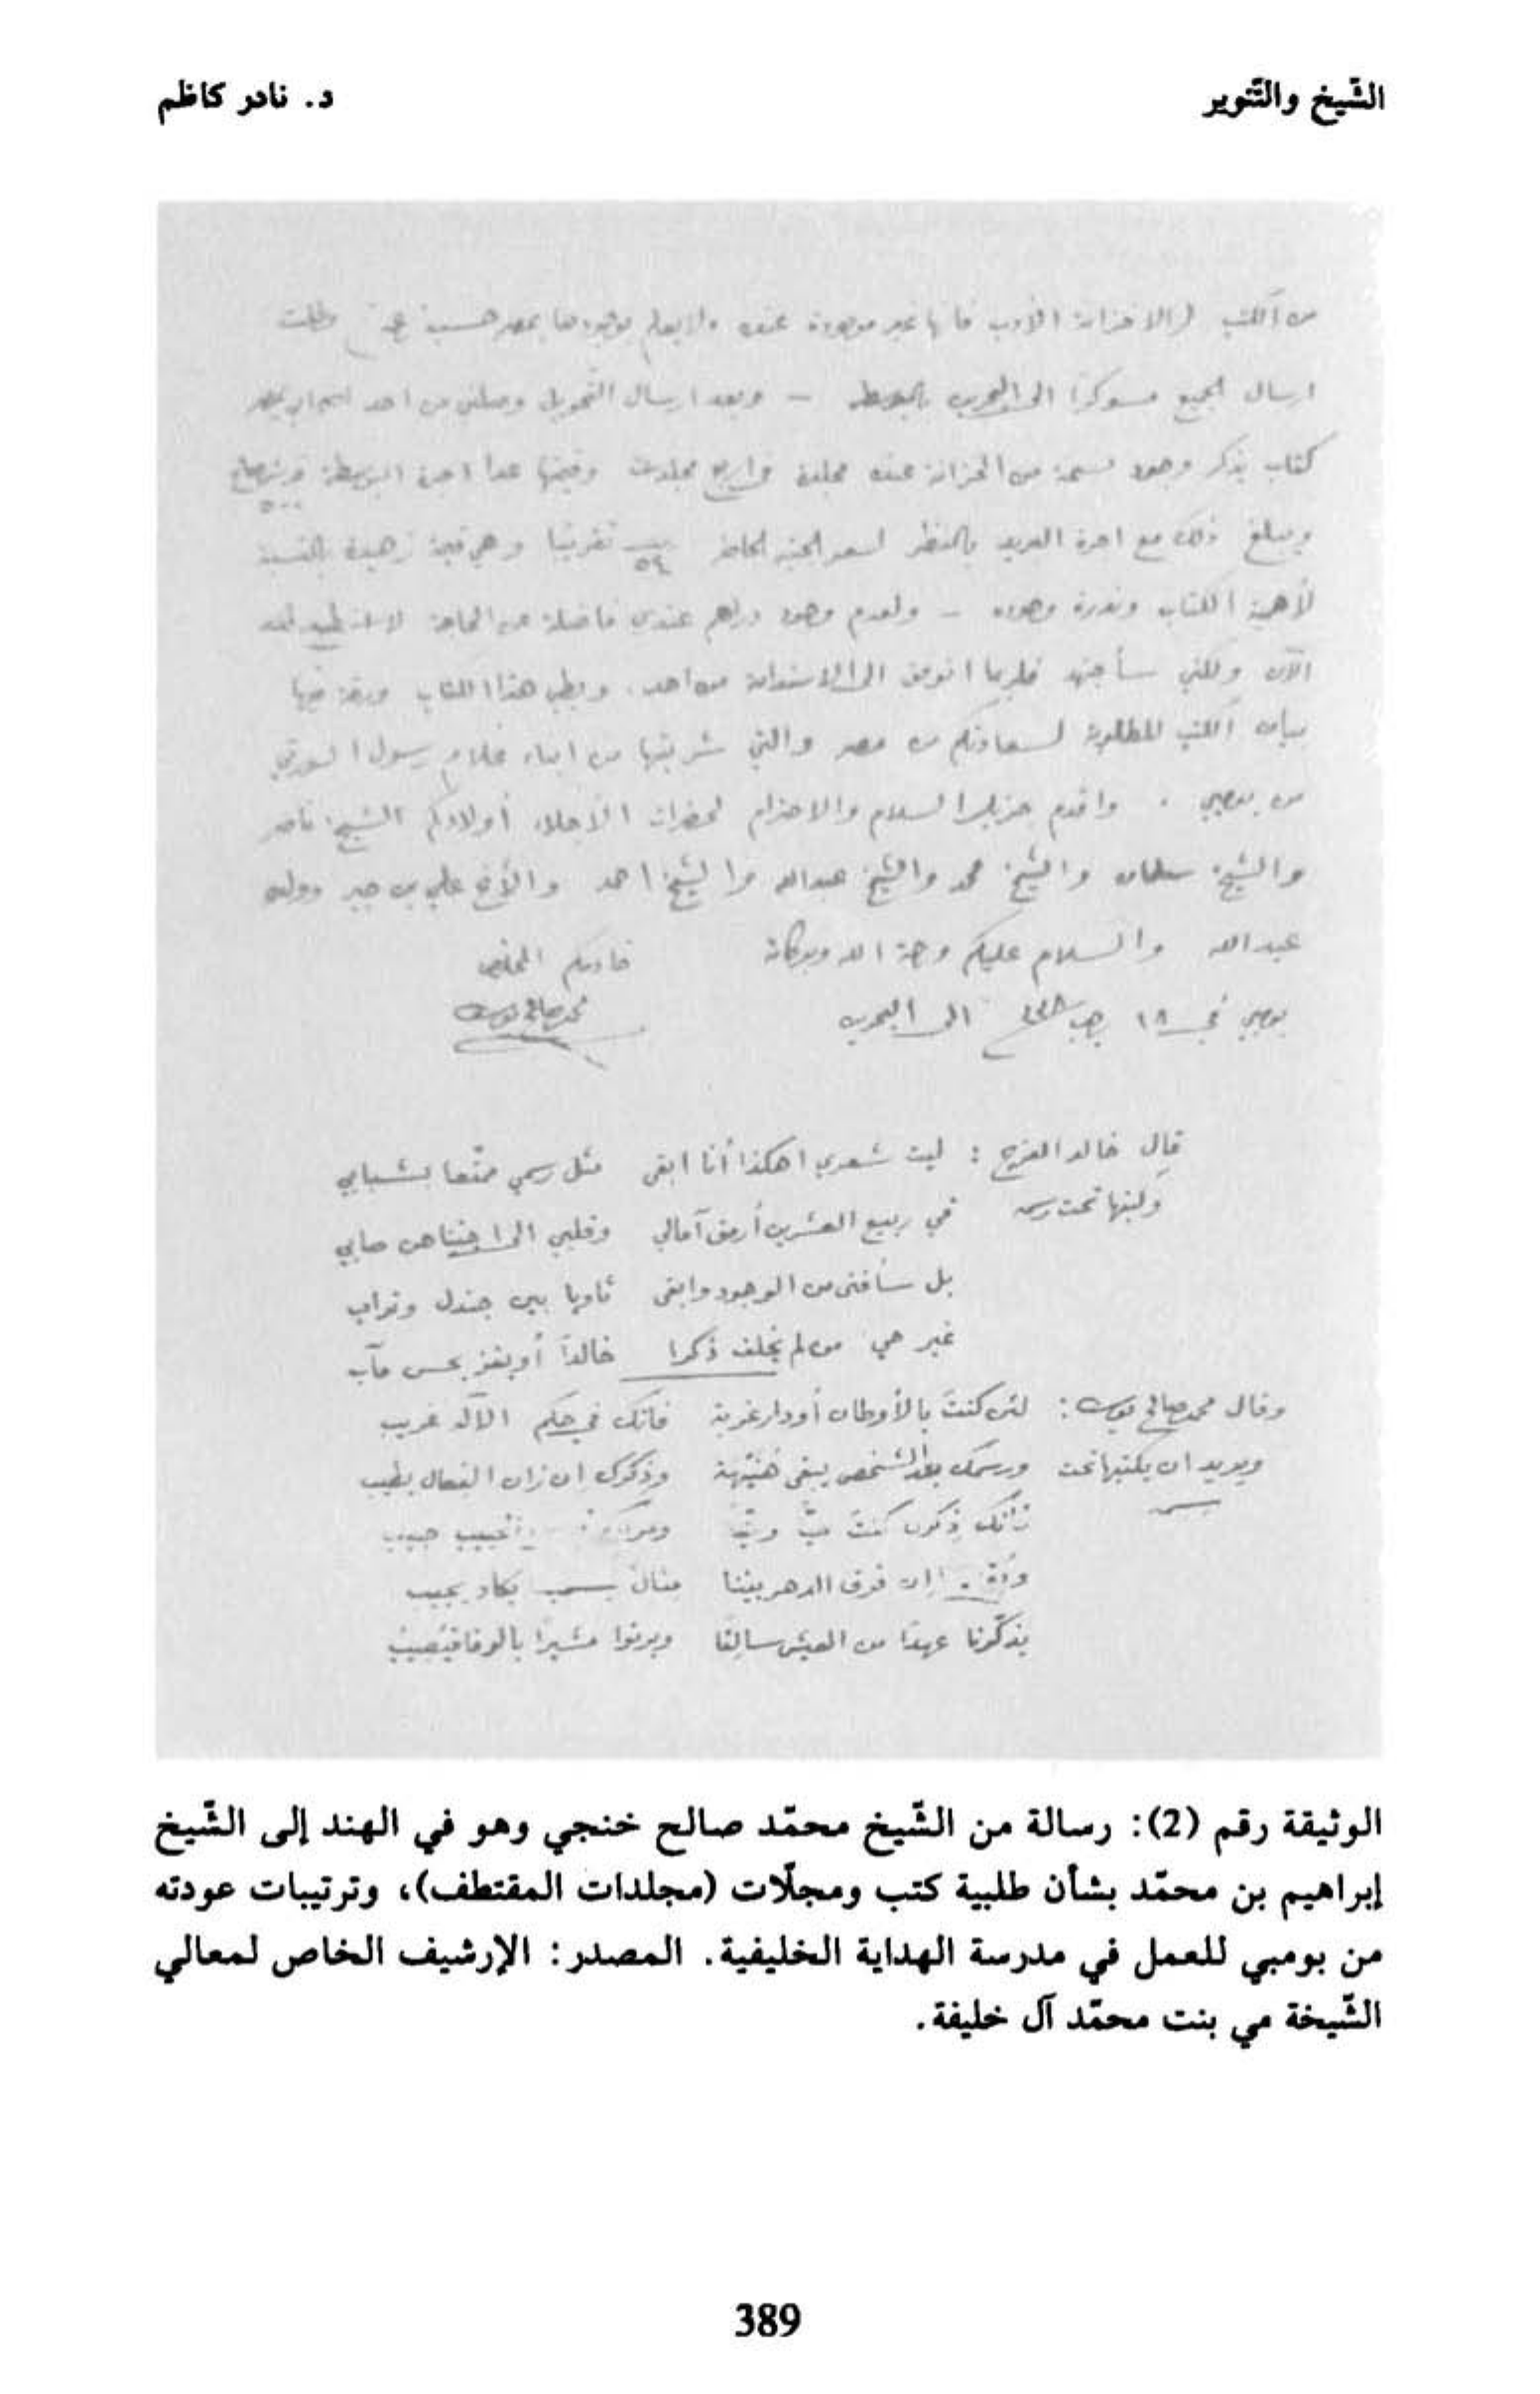 الشّيخ والتّنوير
د. نادر كاظم
من الكتب إلا خزانة الأدب فانها غير موجودة عنده ولا يعلم بوجودها بمصر حسب وطلبت
ارسال الجميع مسوكرًا الى البحرين – وبعد ارسال التحويل وصلني من احد بمصر
كتاب يذكر وجود نسخة من الخزانة عنده مجلدة في اربع مجلدات وقيمتها عدا اجرة البوسطة
ويبلغ ذلك مع اجرة البريد بالنظر لسعر الجنيه الحاضر ٥٤ تقريبا وهي قيمة زهيدة بالنسبة
لأهمية الكتاب وندرة وجوده – ولعدم وجود دراهم عندي فاضلة عن الحاجة
الآن ولكني سأجتهد فلربما اتوفق الى الاستدانة من احد. وبطي هذا الكتاب ورقة فيها
بيان الكتب المطلوبة لسعادتكم من مصر والتي شريتها من ابناء غلام رسول السورتي
من بومبي . واقدم جزيل السلام والاحترام لحضرات الأجلاء أولادكم الشيخ ناصر
والشيخ سلمان والشيخ محمد والشيخ عبدالله والشيخ احمد والأخ علي بن جبر وولده
عبدالله والسلام عليكم ورحمة الله وبركاته خادمكم المخلص
بومبي في ١٨ رجب الى البحرين محمد صالح يوسف
قال خالد الفرج : ليت شعري اهكذا أنا ابقى مثل رسمي ممتّعا بشبابي
وكتبها تحت رسمه في ربيع العشرين أرمق آمالي وقلبي الى صابي
بل سأفنى من الوجود وابقى ثاويا بين جندل وتراب
غير حي من لم يخلف ذكرا خالدًا أو يفز بحسن مآب
وقال محمد صالح يوسف : لئن كنت بالأوطان أو دار غربة فانك في حكم الآله غريب
ويريد ان يكتبها تحت ورسمك بعد الشخص يبقى هنيهة وذكرك ان زان الفعال يطيب
رسمه
حبيب
ان فرق الدهر بيننا يكاد يجيب
يذكّرنا عهدًا من العيش سالفًا ويرنوا مشيرًا بالوفا
الوثيقة رقم (2): رسالة من الشّيخ محمّد صالح خنجي وهو في الهند إلى الشّيخ
إبراهيم بن محمّد بشأن طلبية كتب ومجلّات (مجلدات المقتطف)، وترتيبات عودته
من بومبي للعمل في مدرسة الهداية الخليفية. المصدر: الإرشيف الخاص لمعالي
الشّيخة مي بنت محمّد آل خليفة.
389